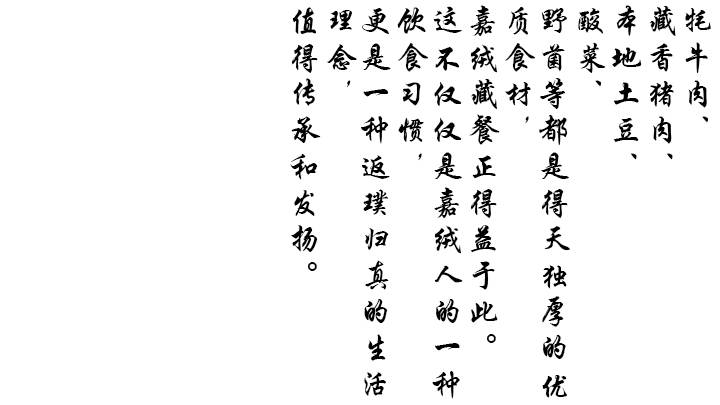 牦牛肉、
藏香猪肉、
本地土豆、
酸菜、
野菌等都是得天独厚的优
质食材，
嘉绒藏餐正得益于此。
这不仅仅是嘉绒人的一种
饮食习惯，
更是一种返璞归真的生活
理念，
值得传承和发扬。